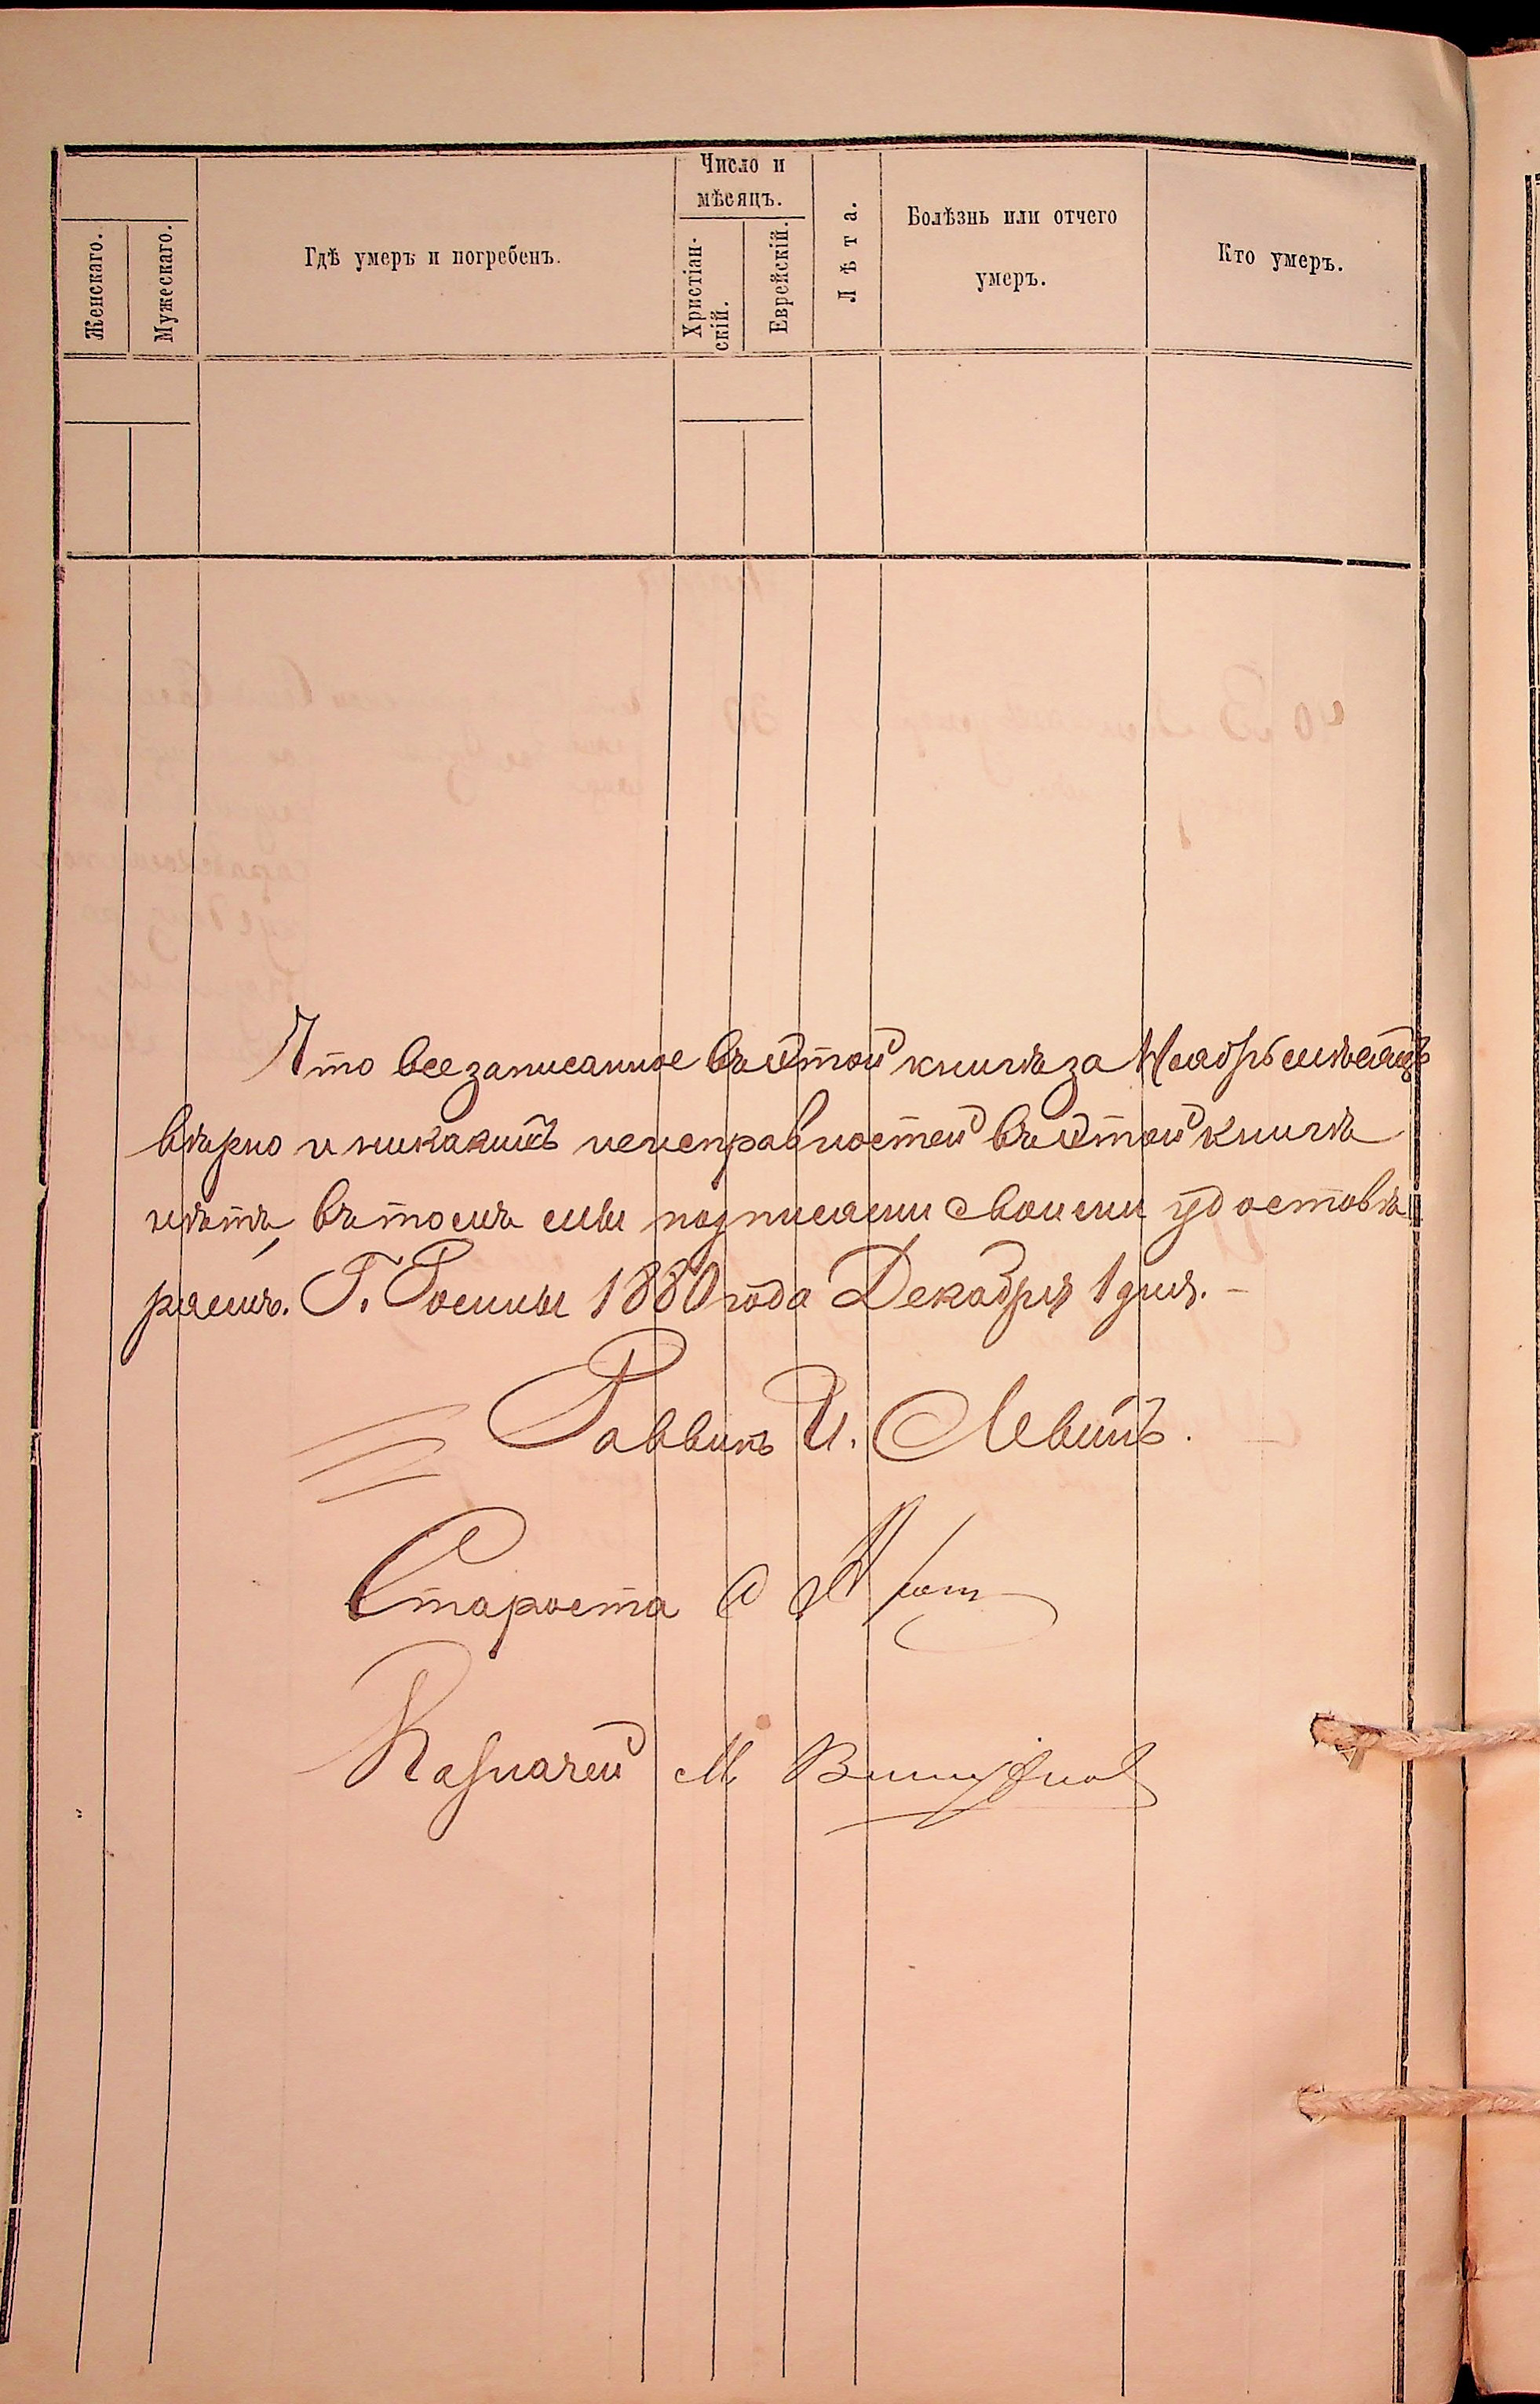 Женскаго.
Мужескаго.
Гдѣ умеръ и погребенъ.
Число и
мѣсяцъ.
Христіан-
скій.
Еврейскій.
Лѣта.
Болѣзнь или отчего
умеръ.
Кто умеръ.
Что все записанное въ этой книгѣ за Ноябрь мѣсяцъ
вѣрно и никакихъ неисправностей въ этой книгѣ
нѣтъ, въ томъ мы подписами своими удостовѣ
ряемъ. Г. Ромны 1880 года Декабря 1 дня. –
Раввинъ И. Левинъ.
Староста
Казначей М.